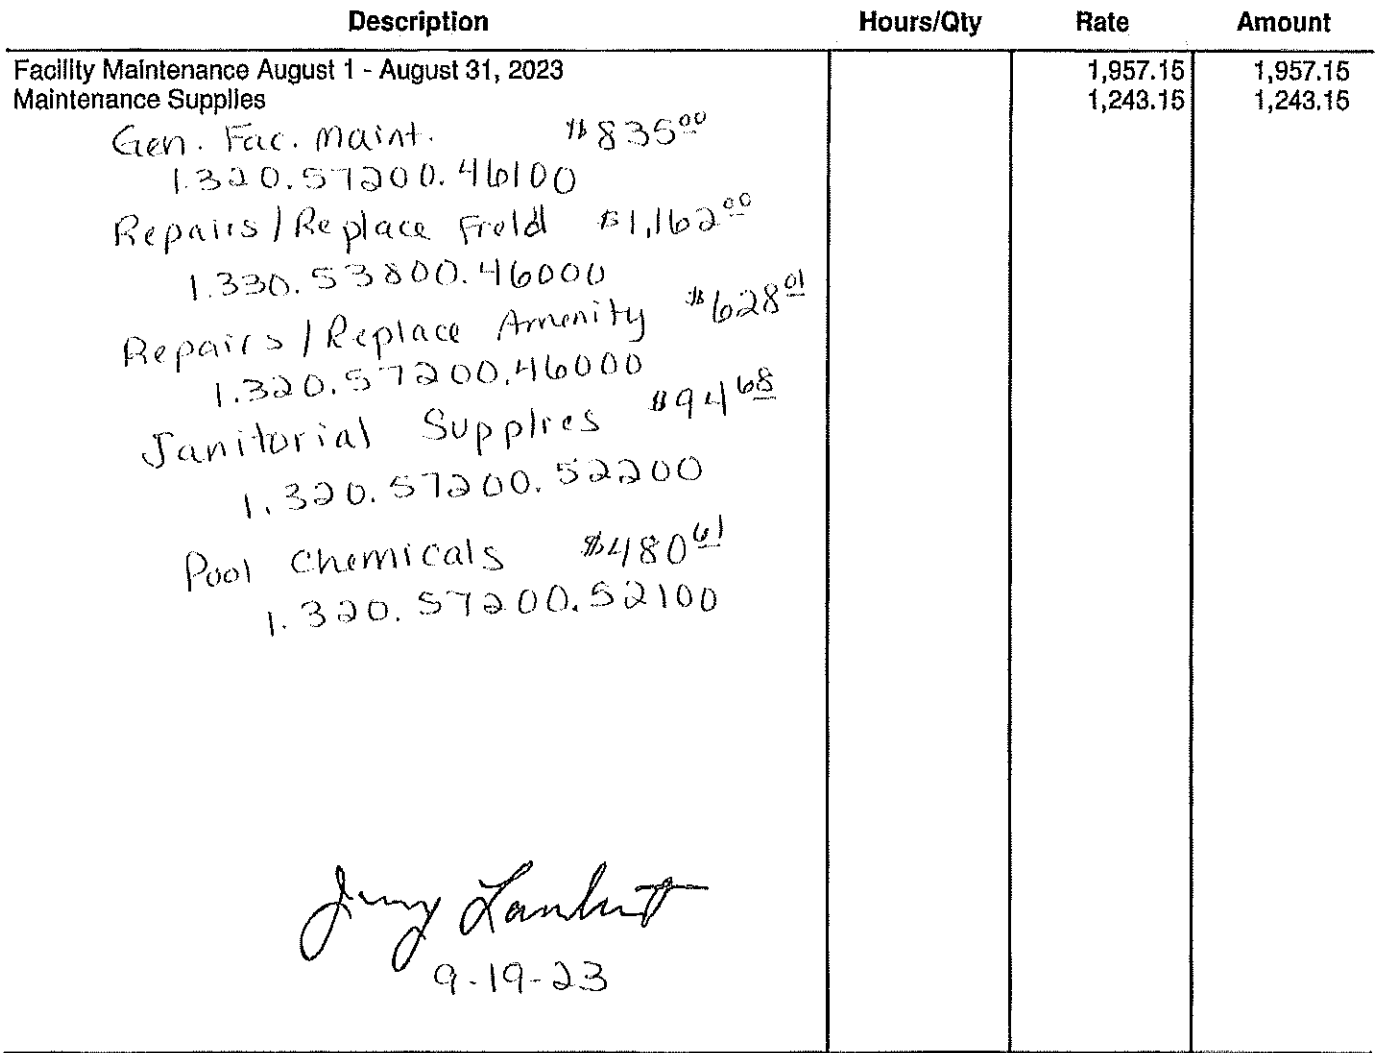 Description Hours/Qty Rate Amount
Facility Maintenance August 1 - August 31, 2023 1,957.15 1,957.15
Maintenance Supplies 1,243.15 1,243.15
Gen. Fac. Maint. $835⁰⁰
1.320.57200.46100
Repairs/Replace Field $1,162⁰⁰
1.330.53800.46000
Repairs/Replace Amenity $628⁰¹
1.320.57200.46000
Janitorial Supplies $94⁶⁸
1.320.57200.52200
Pool Chemicals $480⁶¹
1.320.57200.52100
Jerry Lambert
9-19-23